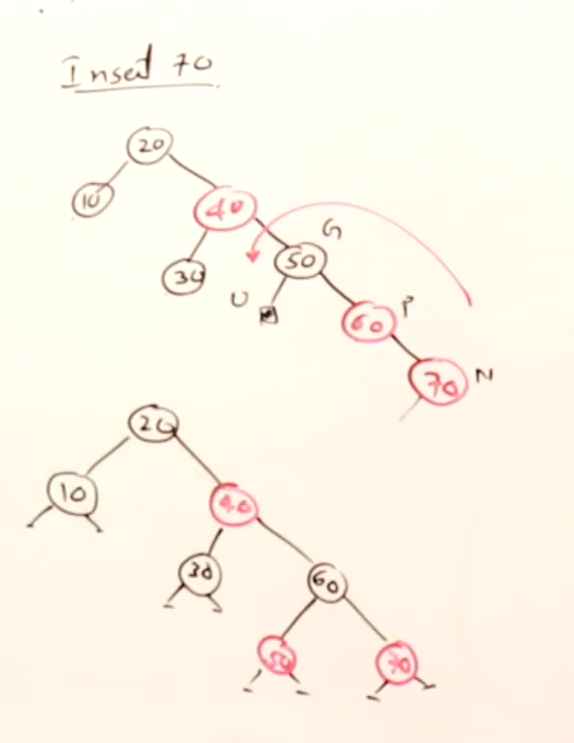 Insert 70
20
10
40
G
30
50
U
60
P
70
N
20
10
40
30
60
50
70